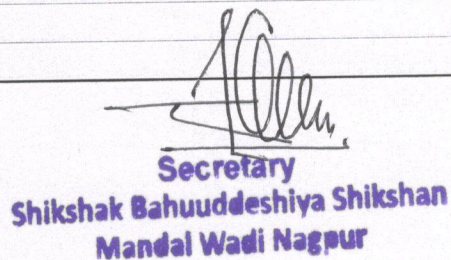 Secretary
Shikshak Bahuuddeshiya Shikshan
Mandal Wadi Nagpur